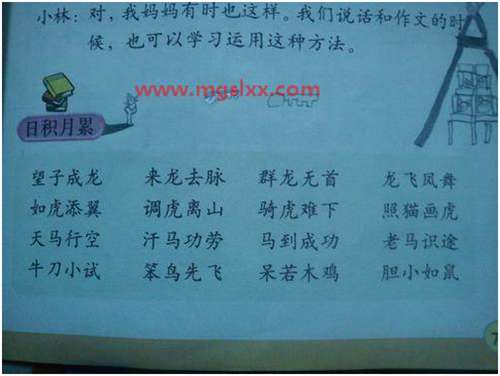 小林：对，我妈妈有时也这样。我们说话和作文的时
候，也可以学习运用这种方法。
www.mgslxx.com
日积月累
望子成龙 来龙去脉 群龙无首 龙飞凤舞
如虎添翼 调虎离山 骑虎难下 照猫画虎
天马行空 汗马功劳 马到成功 老马识途
牛刀小试 笨鸟先飞 呆若木鸡 胆小如鼠
7